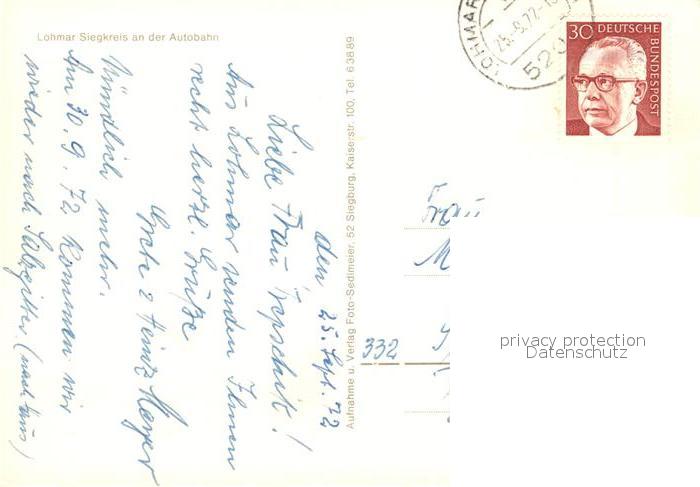 Lohmar Siegkreis an der Autobahn
den 25. Sept. 72
Liebe Frau !
Aus Lohmar senden Ihnen
recht herzl. Grüße
Grete & Heinz Mayer
Mündlich mehr.
Am 30. 9. 72 kommen wir
wieder nach Salzgitter (nach Haus)
Aufnahme u. Verlag Foto-Sedlmeier, 52 Siegburg, Kaiserstr. 100, Tel. 63889
LOHMAR
25.-9.72-
520
30 DEUTSCHE
BUNDESPOST
Frau
M
332
privacy protection
Datenschutz